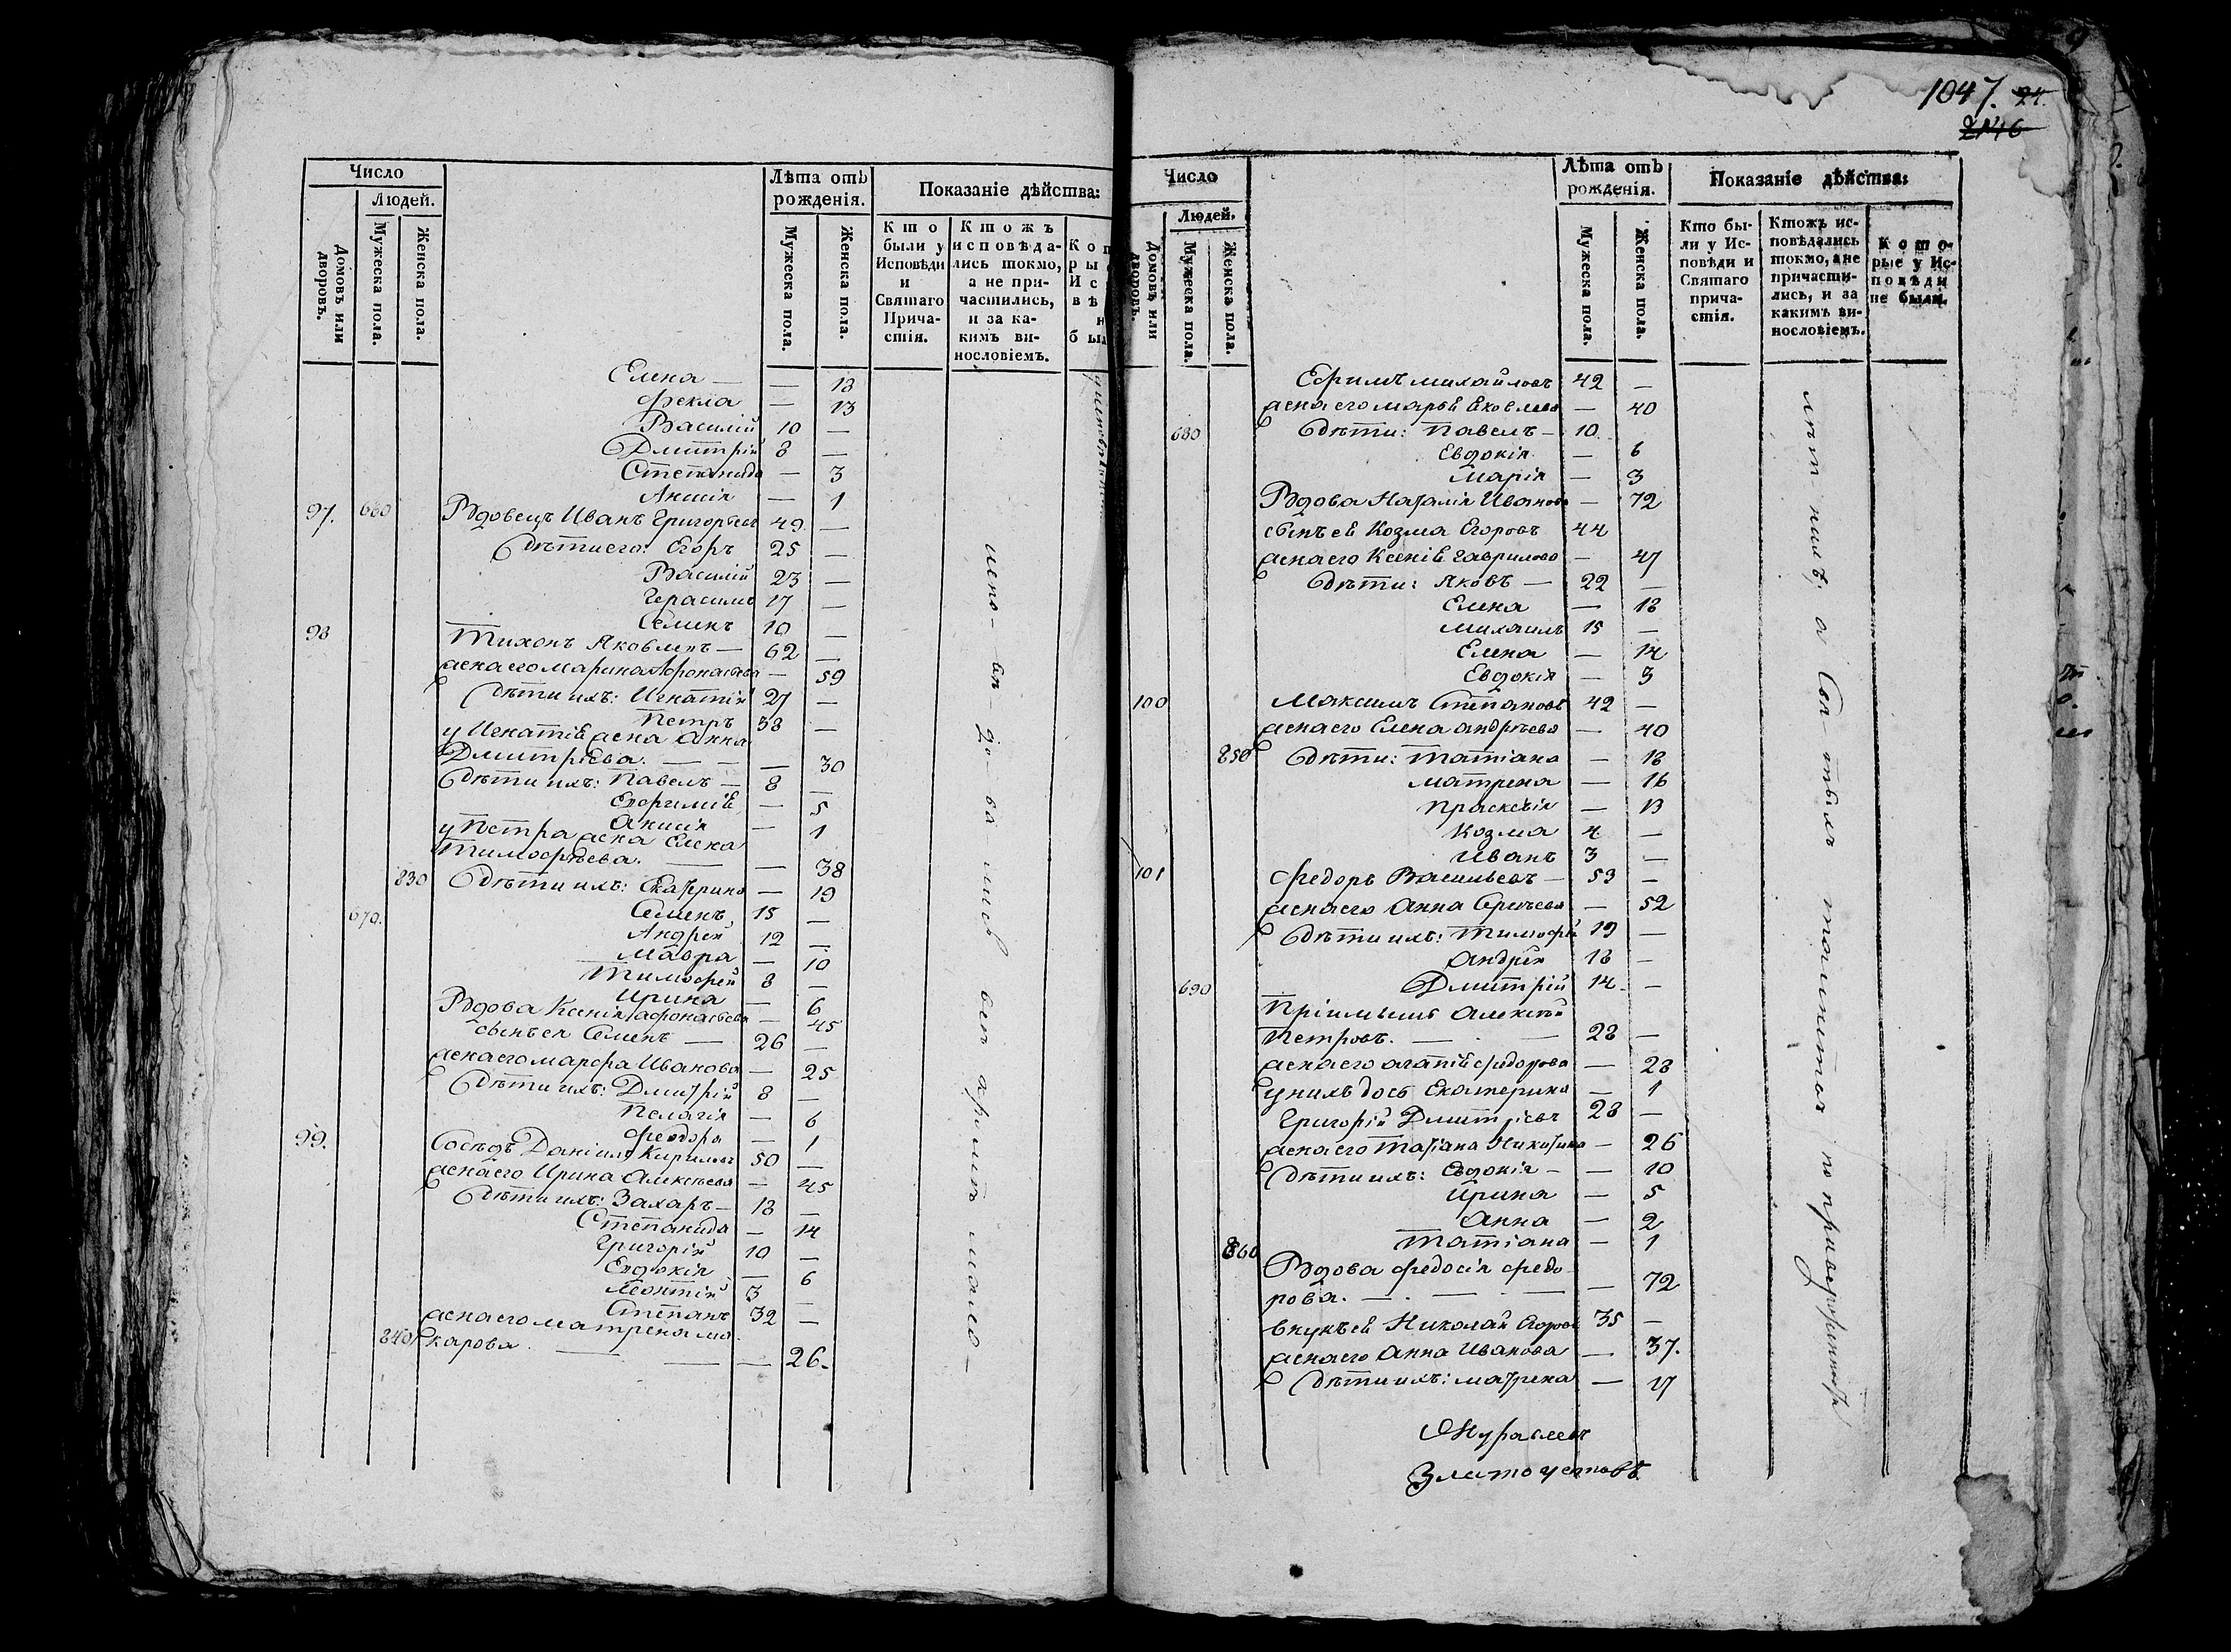 Число
Людей.
Домовъ или дворовъ.
Мужеска пола.
Женска пола.
Лѣта отъ рожденія.
Мужеска пола.
Женска пола.
Показаніе дѣйства:
Кто были у Исповѣди и Святаго Причастія.
Ктожъ исповѣдались токмо, а не причастились, и за какимъ винословіемъ.
Елена — — 18
Фекла — 13
Василій 10 —
Дмитрій 8 —
Степанида — 3
Анисія — 1
97. 660 Вдовецъ Иванъ Григорьевъ 49 —
Дѣти его: Егоръ 25 —
Василій 23 —
Герасимъ 17 —
Семенъ 10 —
98 Тихонъ Яковлевъ — 62 —
жена его Марина Афонасьева — 59
Дѣти ихъ: Игнатій 27 —
Петръ 38 —
у Игнатія жена Анна
Дмитріева. — — — 30
Дѣти ихъ: Павелъ — 8 —
— 5
Анисія — 1
у Петра жена Елена
Тимофѣева. — — 38
830 Дѣти ихъ: Екатерина — 19
670. Семенъ 15 —
Андрей 12 —
Мавра — 10
Тимофей 8 —
Ирина — 6
Вдова Ксенія Афонасьева — 45
сынъ ея Семенъ — 26 —
жена его Марфа Иванова — 25
Дѣти ихъ: Дмитрій 8 —
Пелагія — 6
Феодора — 1
99. Сосѣдъ Даніилъ Кириловъ 50 —
жена его Ирина Алексѣева — 45
Дѣти ихъ: Захаръ — 18 —
Степанида — 14
Григорій 10 —
Евдокія — 6
Леонтій 3 —
Степанъ 32 —
жена его Матрена Ма-
840 карова. — — — 26.
1047. 24.
2146
Число
Людей.
Домовъ или дворовъ.
Мужеска пола.
Женска пола.
Лѣта отъ рожденія.
Мужеска пола.
Женска пола.
Показаніе дѣйства:
Кто были у Исповѣди и Святаго причастія.
Ктожъ исповѣдались токмо, а не причастились, и за какимъ винословіемъ.
Которые у Исповѣди не были.
Ефимъ Михайловъ 42 —
жена его Марья Яковлева — 40
680 Дѣти: Павелъ — 10
Евдокія — 6
Марія — 3
Вдова Наталія Иванова — 72
сынъ ея Козма Егоровъ 44
жена его Ксенія Гаврилова — 47
Дѣти: Яковъ — 22 —
Елена — 18
Михаилъ 15 —
Елена — 14
Евдокія — 3
100 Максимъ Степановъ 42 —
жена его Елена Андрѣева — 40
850 Дѣти: Татіана — 18
Матрена — 16
Праскевія — 13
Козма 4 —
Иванъ 3 —
101 Федоръ Васильевъ — 53 —
жена его Анна Сергѣева — 52
Дѣти ихъ: Тимофей 19 —
Андрей 18 —
690 Дмитрій 14 —
Пріимышъ Алексѣй
Петровъ. — — 28 —
жена его Агапія Федорова — 28
у нихъ дочь Екатерина — 1
Григорій Дмитріевъ 28 —
жена его Татіана Никитина — 26
Дѣти ихъ: Евдокія — — 10
Ирина — 5
Анна — 2
Татіана — 1
860 Вдова Федосія Федо-
рова. — — — — 72
внукъ ея Николай Егоровъ 35 —
жена его Анна Иванова — 37.
Дѣти ихъ: Матрена — 17
Журавлевъ
Златоустовъ